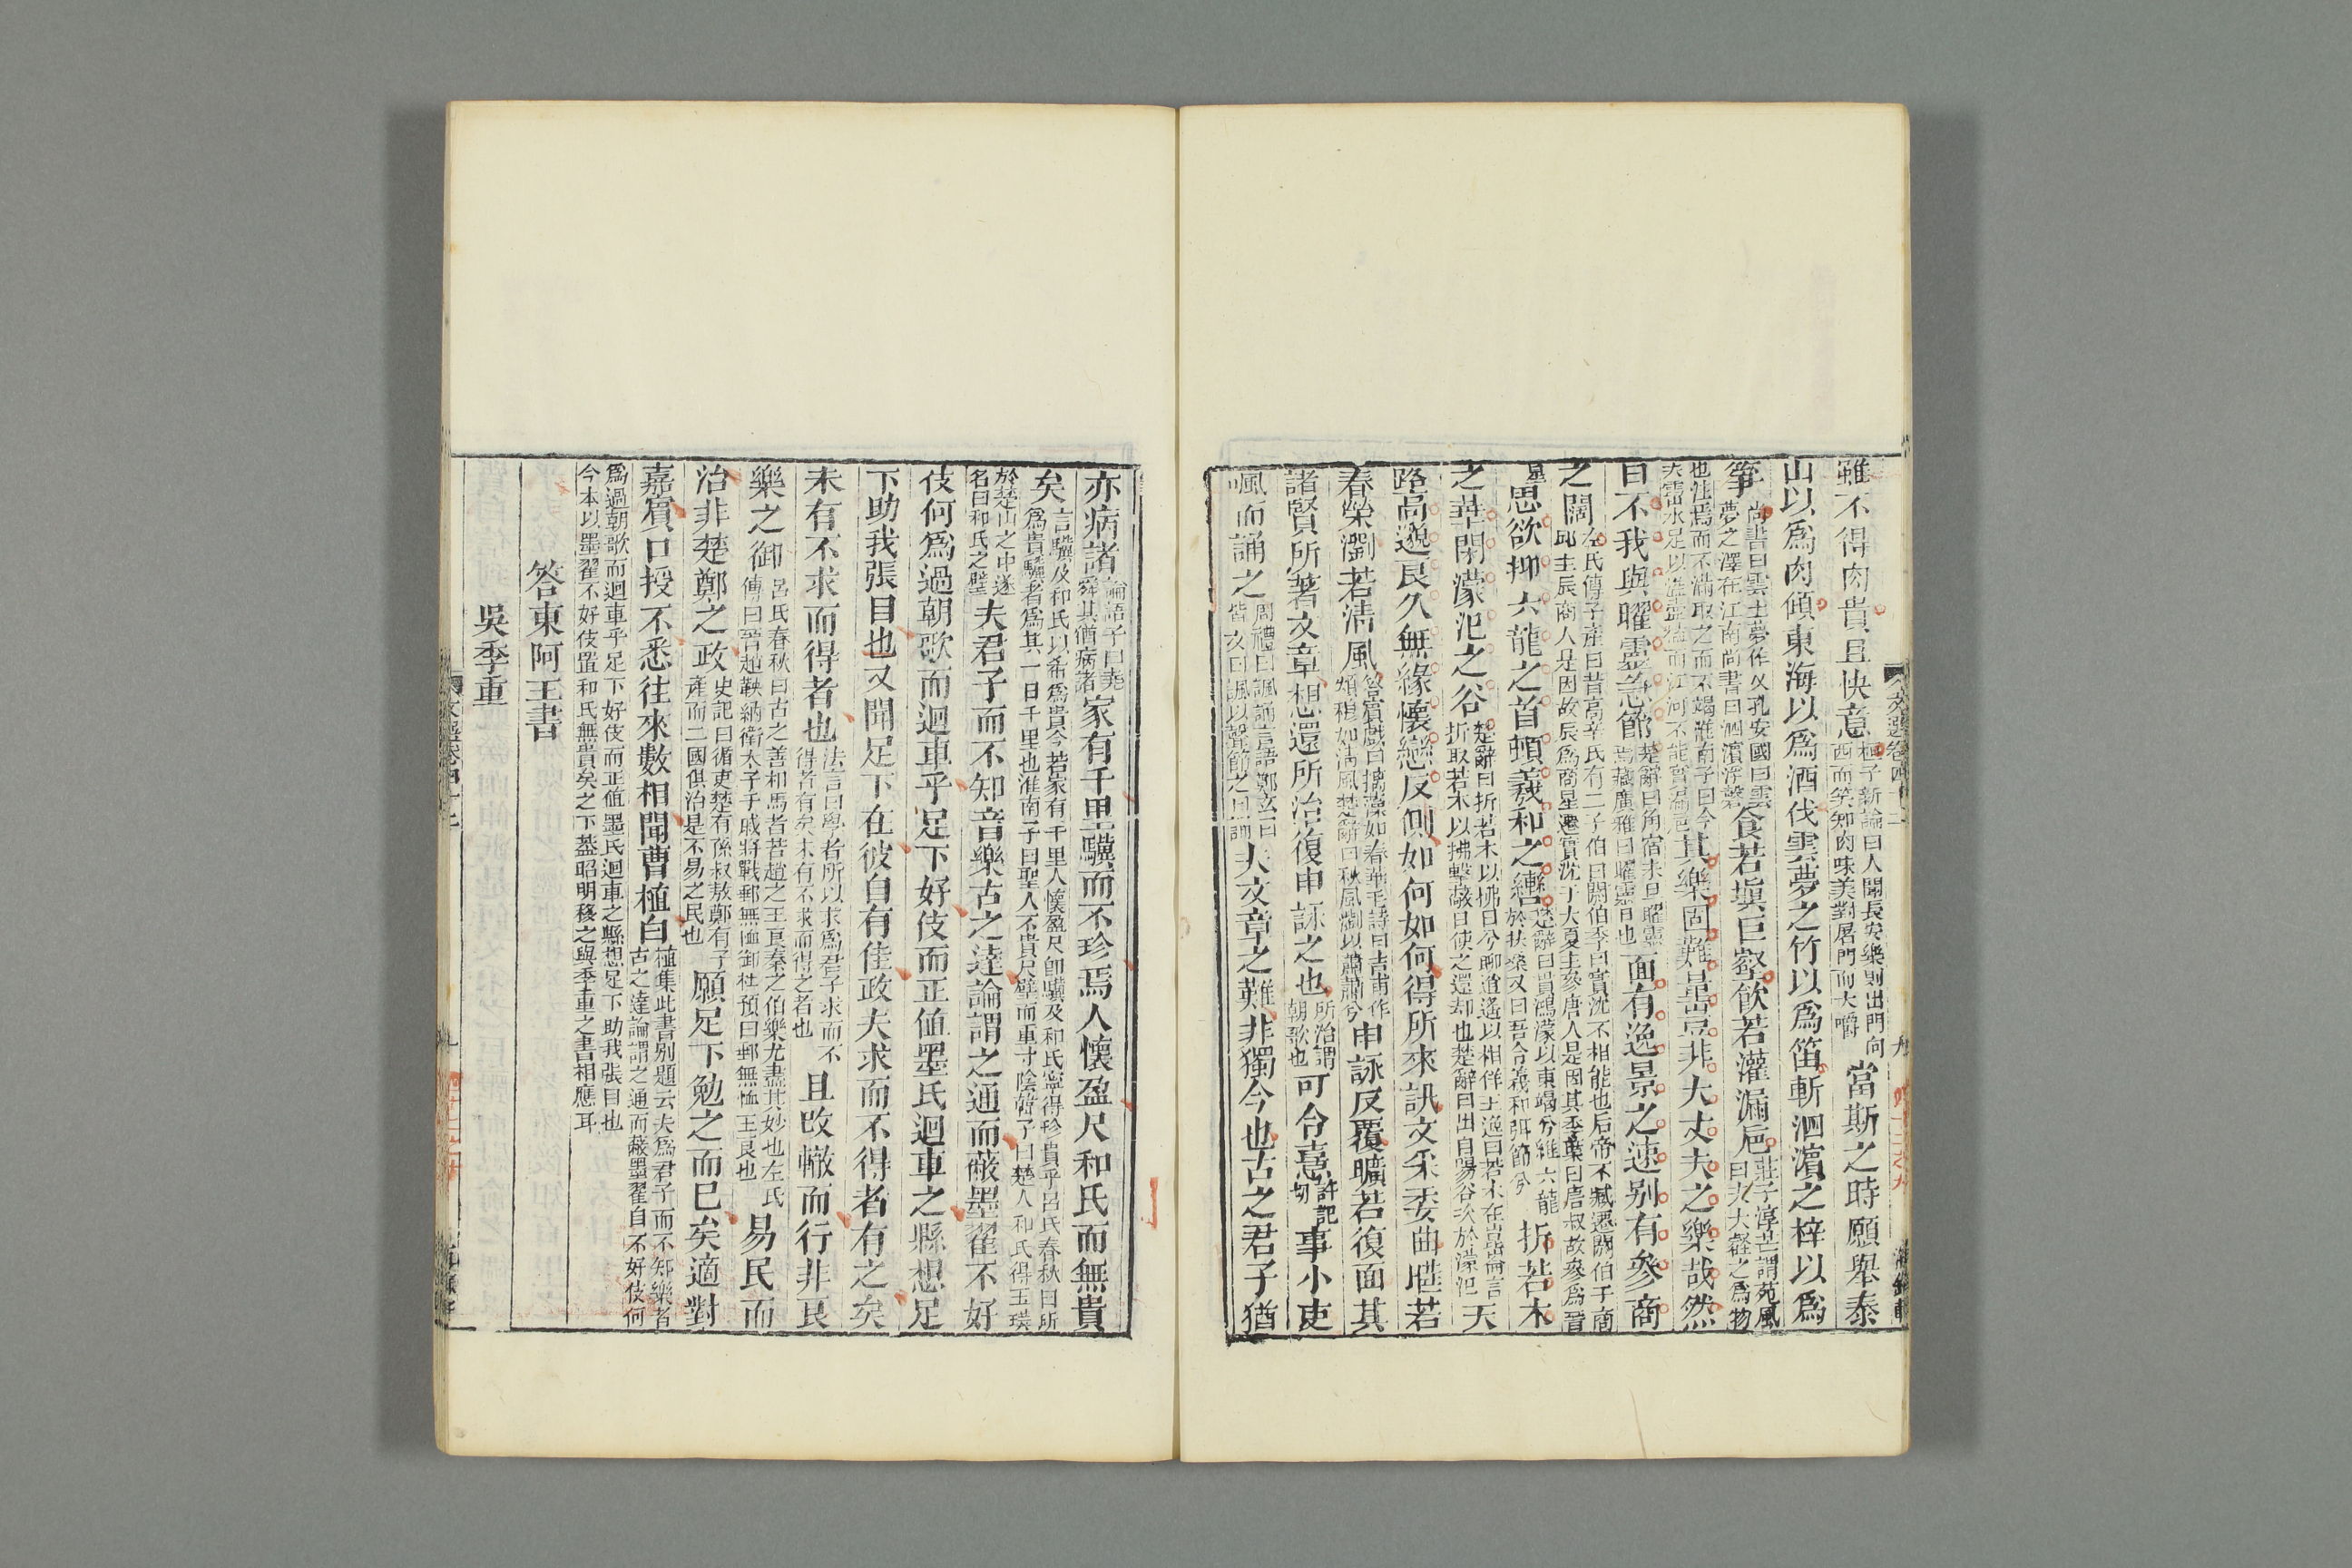 雖不得肉貴且快意桓子新論曰人聞長安樂則出門向西而笑知肉味美對屠門而大嚼當斯之時願舉泰
山以爲肉傾東海以爲酒伐雲夢之竹以爲笛斬泗濱之梓以爲
箏尚書曰雲土夢作乂孔安國曰雲夢之澤在江南尚書曰泗濱浮磬食若塡巨壑飮若灌漏巵莊子淳芒謂苑風曰夫大壑之爲物
也注焉而不滿取之而不竭淮南子曰今夫霤水足以溢壺榼而江河不能實漏巵其樂固難量豈非大丈夫之樂哉然
日不我與曜靈急節楚辭曰角宿未旦曜靈焉藏廣雅曰曜靈日也面有逸景之速别有參商
之闊左氏傳子產曰昔高辛氏有二子伯曰閼伯季曰實沈不相能也后帝不臧遷閼伯于商邱主辰商人是因故辰爲商星遷實沈于大夏主參唐人是因其季葉曰唐叔故參爲晉
星思欲抑六龍之首頓羲和之轡楚辭曰貫鴻濛以東竭兮維六龍於扶桑又曰吾令羲和弭節兮折若木
之華閉濛汜之谷楚辭曰折若木以拂日兮聊逍遙以相佯王逸曰若木在崑崙言折取若木以拂擊蔽日使之還却也楚辭曰出自陽谷次於濛汜天
路高邈良久無緣懷戀反側如何如何得所來訊文采委曲曄若
春榮瀏若清風荅賓戲曰摛藻如春華毛詩曰吉甫作頌穆如清風楚辭曰秋風瀏以蕭蕭兮申詠反覆曠若復面其
諸賢所著文章想還所治復申詠之也所治謂朝歌也可令憙許記切事小吏
諷而誦之周禮曰諷誦言語鄭玄曰背文曰諷以聲節之曰誦夫文章之難非獨今也古之君子猶
亦病諸論語子曰堯舜其猶病諸家有千里驥而不珍焉人懷盈尺和氏而無貴
矣言驥及和氏以希爲貴今若家有千里人懷盈尺卽驥及和氏寧得珍貴乎呂氏春秋曰所爲貴驥者爲其一日千里也淮南子曰聖人不貴尺璧而重寸陰韓子曰楚人和氏得玉璞
於楚山之中遂名曰和氏之璧夫君子而不知音樂古之達論謂之通而蔽墨翟不好
伎何爲過朝歌而迴車乎足下好伎而正値墨氏迴車之縣想足
下助我張目也又聞足下在彼自有佳政夫求而不得者有之矣
未有不求而得者也法言曰學者所以求爲君子求而不得者有矣夫未有不求而得之者也且改轍而行非良
樂之御呂氏春秋曰古之善相馬者若趙之王良秦之伯樂尤盡其妙也左氏傳曰晉趙鞅納衛太子于戚將戰郵無恤御杜預曰郵無恤王良也易民而
治非楚鄭之政史記曰循吏楚有孫叔敖鄭有子產而二國俱治是不易之民也願足下勉之而已矣適對
嘉賓口授不悉往來數相聞曹植白植集此書别題云夫爲君子而不知樂者古之達論謂之通而蔽墨翟自不好伎何
爲過朝歌而迴車乎足下好伎而正値墨氏迴車之縣想足下助我張目也今本以墨翟不好伎置和氏無貴矣之下蓋昭明移之與季重之書相應耳
答東阿王書
吳季重
文選卷四十二